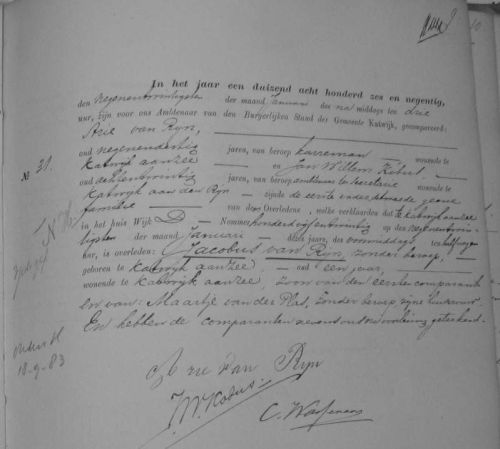 In het jaar een duizend acht honderd zes en negentig,
den negenentwintigsten der maand Januari des na middags ten drie
uur, zijn voor ons Ambtenaar van den Burgerlijken Stand der Gemeente Katwijk, gecompareerd:
Arie van Rijn,
oud negenendertig jaren, van beroep karreman wonende te
No 21.
Katwijk aan Zee en Jan Willem
oud achtentwintig jaren, van beroep ambtenaar ter Secretarie wonende te
Katwijk aan den Rijn zijnde de eerste de tweede geene
familie van den Overledene, welke verklaarden dat te Katwijk aan Zee
in het huis Wijk D Nommer op den negenentwin
tigsten der maand Januari dezes jaars, des voormiddags ten half negen
ure, is overleden: Jacobus van Rijn, zonder beroep,
geboren te Katwijk aan Zee, oud een jaar,
wonende te Katwijk aan Zee, zoon van den eerste comparant
en van: Maartje van der Plas, zonder beroep zijne huisvrouw.
En hebben de comparanten nevens ons na voorlezing geteekend.
18-9-83
Arie van Rijn